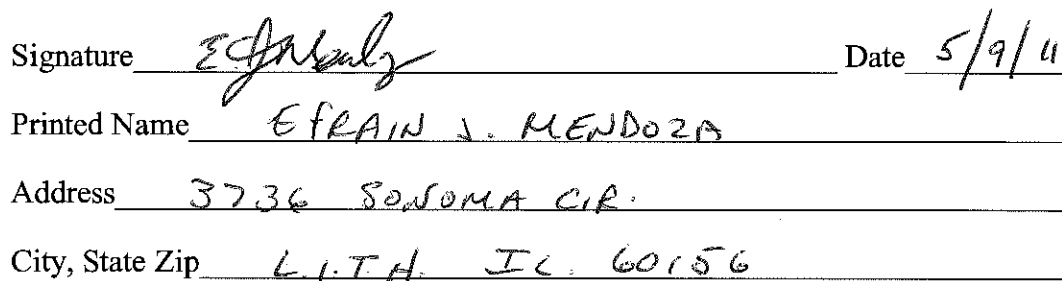 Signature Date 5/9/11
Printed Name EFRAIN J. MENDOZA
Address 3736 SONOMA CIR.
City, State Zip L.I.T.H. IL. 60156